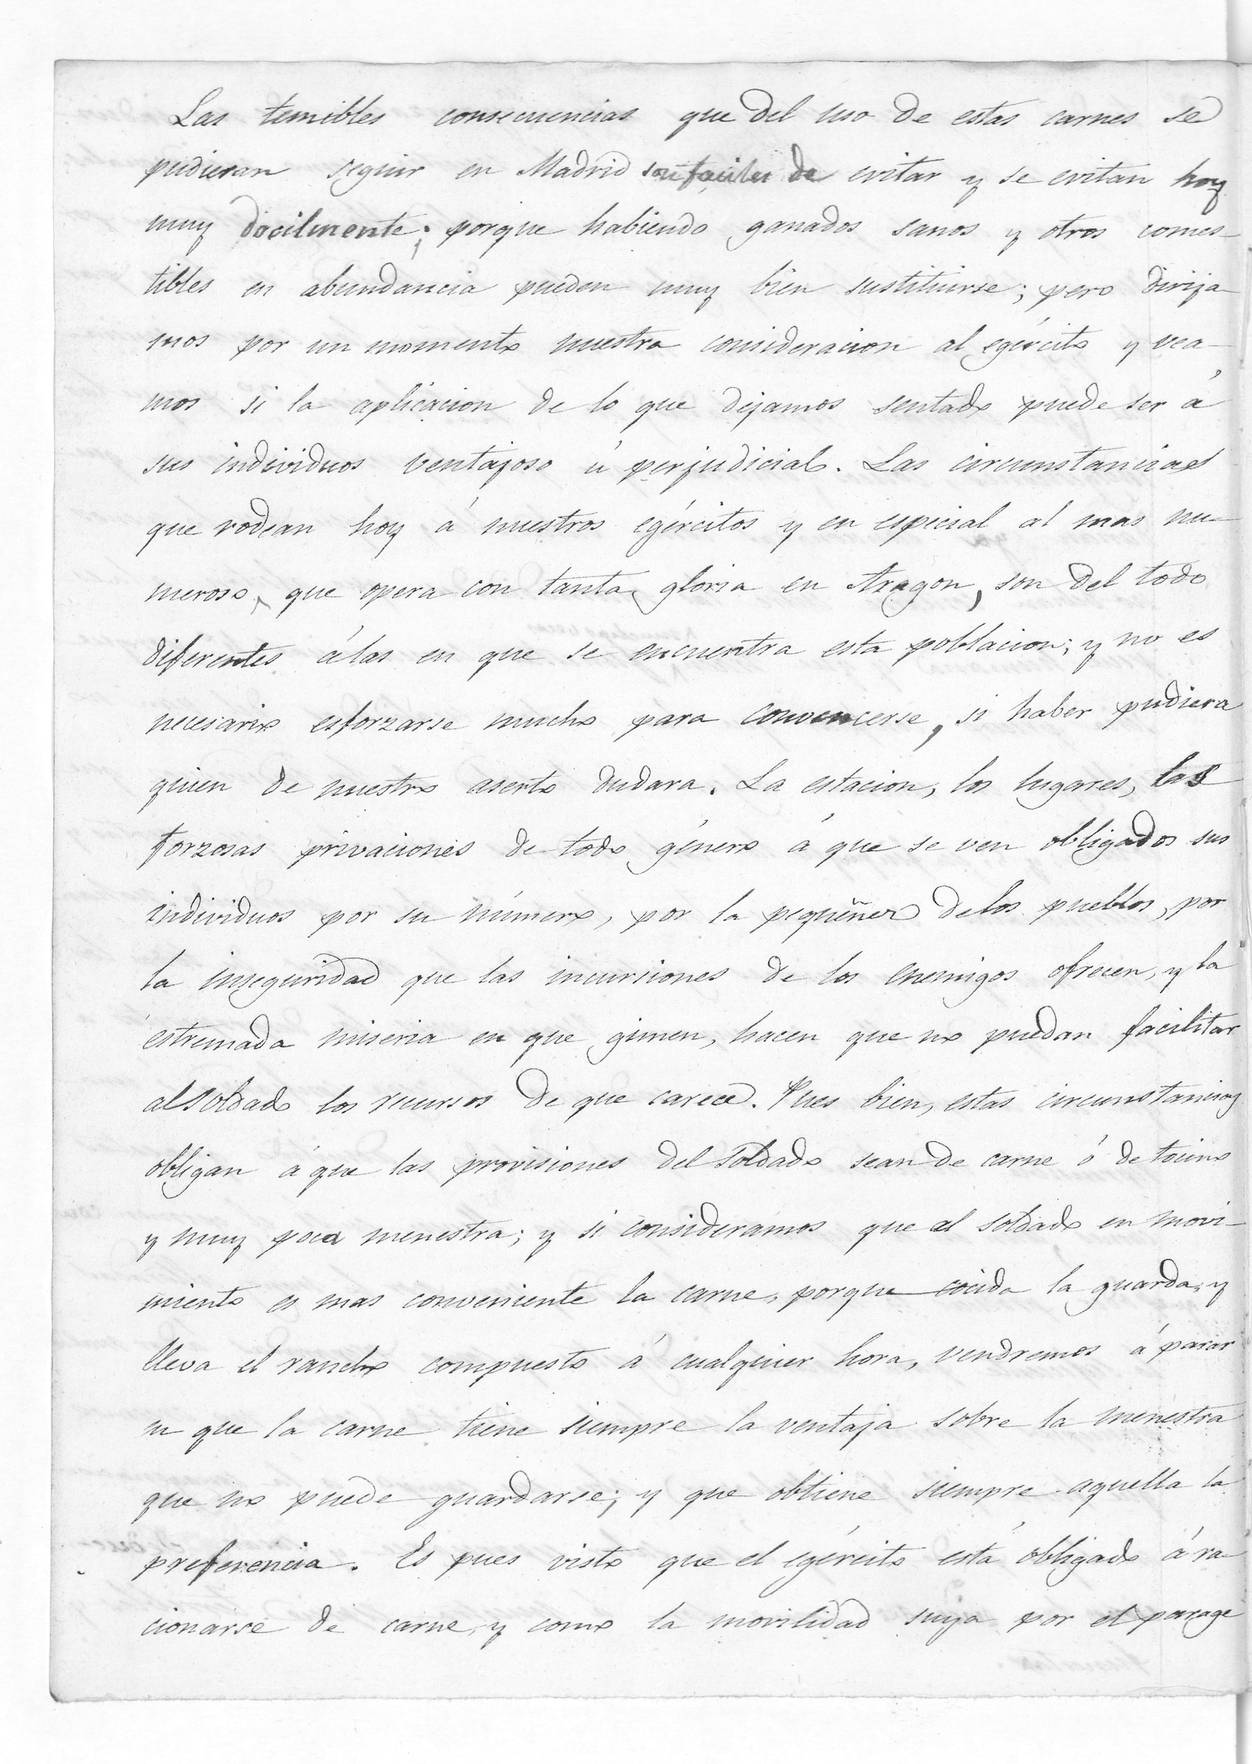 Las temibles consecuencias que del uso de estas carnes se
pudieran seguir en Madrid son faciles de evitar y se evitan hoy
muy docilmente; porque habiendo ganados sanos y otros comes-
tibles en abundancia pueden muy bien sustituirse; pero dirija
mos por un momento nuestra consideracion al egército y vea-
mos si la aplicacion de lo que dejamos sentado puede ser á
sus individuos ventajoso ú perjudicial. Las circunstancias
que rodean hoy á nuestros egércitos y en especial al mas nu-
meroso, que opera con tanta gloria en Aragon, son del todo
diferentes á las en que se encuentra esta poblacion; y no es
necesario esforzarse mucho para convencerse, si haber pudiera
quien de nuestro aserto dudara. La estacion, los lugares, las
forzosas privaciones de todo género á que se ven obligados sus
individuos por su número, por la pequeñez de los pueblos, por
la inseguridad que las incursiones de los enemigos ofrecen, y la
estremada miseria en que gimen, hacen que no puedan facilitar
al soldado los recursos de que carece. Pues bien, estas circunstancias
obligan á que las provisiones del soldado sean de carne ó de tocino
y muy poca menestra; y si consideramos que al soldado en movi-
miento es mas conveniente la carne, porque cocida la guarda, y
lleva el rancho compuesto á cualquier hora, vendremos á parar
en que la carne tiene siempre la ventaja sobre la menestra
que no puede guardarse; y que obtiene siempre aquella la
preferencia. Es pues visto que el egército está obligado á ra
cionarse de carne, y como la movilidad suya por el parage